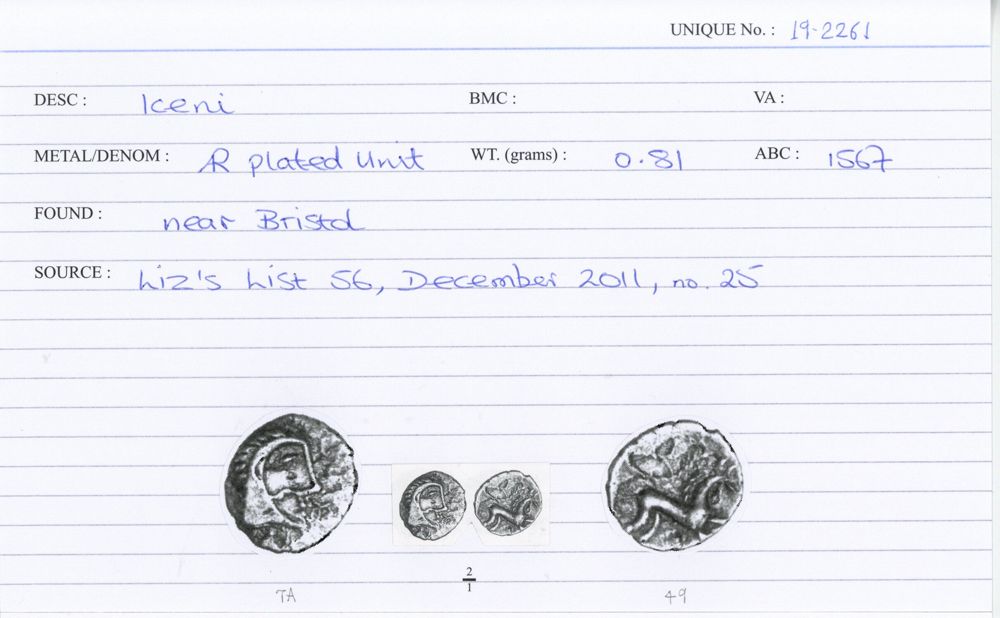 UNIQUE No. : 19-2261
DESC : Iceni BMC : VA :
METAL/DENOM : AR plated Unit WT. (grams) : 0.81 ABC : 1567
FOUND : near Bristol
SOURCE : Liz's List 56, December 2011, no. 25
2
1
TA 49